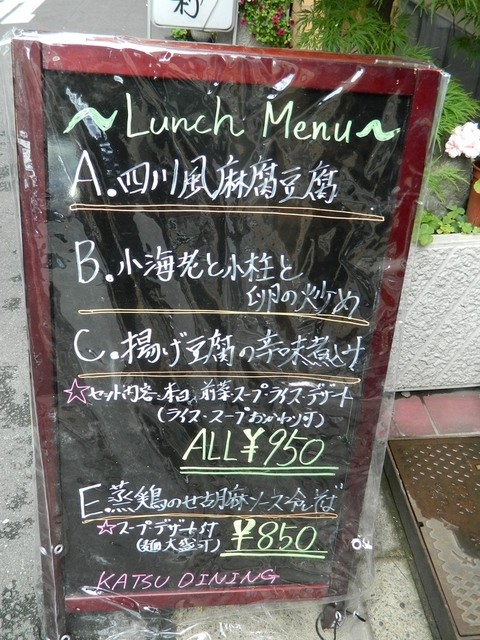 ~Lunch Menu~
A.四川風麻腐豆腐
B.小海老と小柱と
卵の炒め
C.揚げ豆腐の辛味煮込み
☆セット内容、本日前菜・スープライス・デザート
(ライス・スープおかわり可)
ALL¥950
E.蒸鶏のせ胡麻ソース冷そば
☆スープデザート付
(麺大盛可) ¥850
KATSU DINING